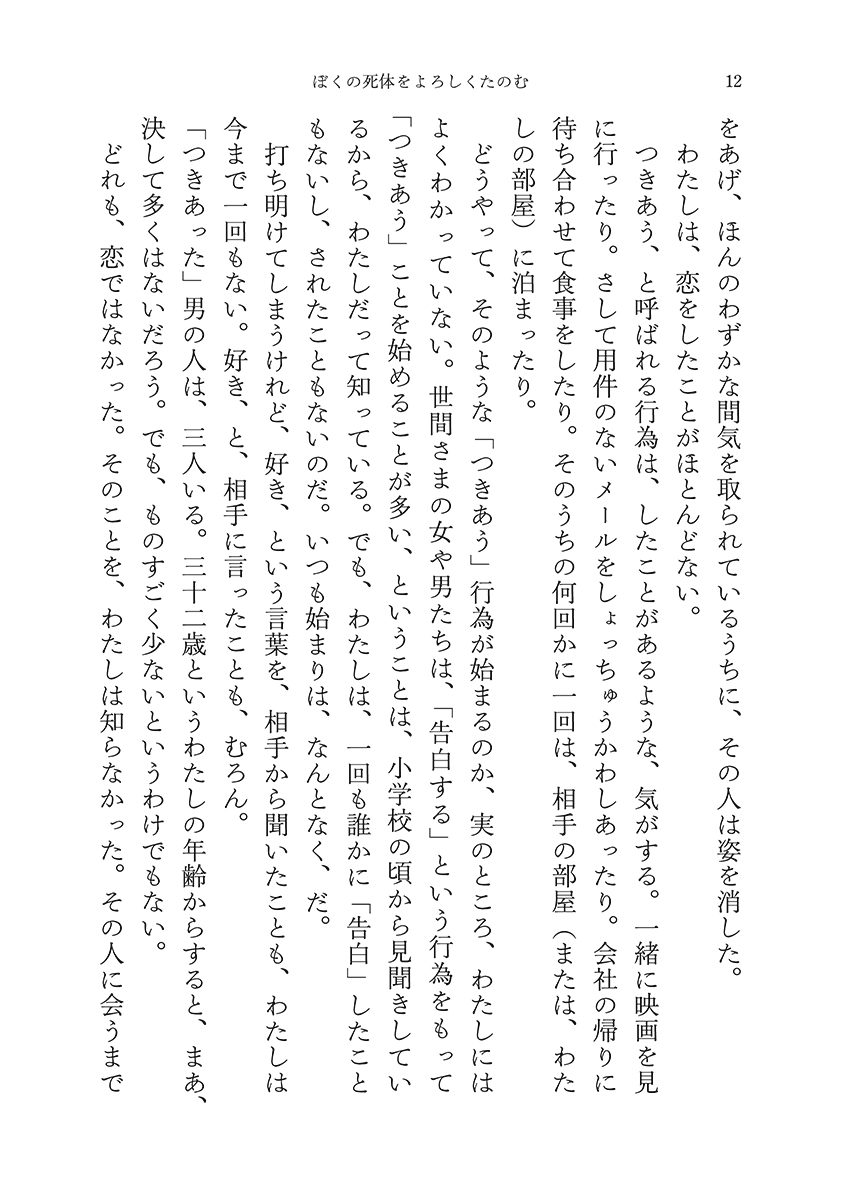 ぼくの死体をよろしくたのむ
12
をあげ、ほんのわずかな間気を取られているうちに、その人は姿を消した。
わたしは、恋をしたことがほとんどない。
つきあう、と呼ばれる行為は、したことがあるような、気がする。一緒に映画を見
に行ったり。さして用件のないメールをしょっちゅうかわしあったり。会社の帰りに
待ち合わせて食事をしたり。そのうちの何回かに一回は、相手の部屋（または、わた
しの部屋）に泊まったり。
どうやって、そのような「つきあう」行為が始まるのか、実のところ、わたしには
よくわかっていない。世間さまの女や男たちは、「告白する」という行為をもって
「つきあう」ことを始めることが多い、ということは、小学校の頃から見聞きしてい
るから、わたしだって知っている。でも、わたしは、一回も誰かに「告白」したこと
もないし、されたこともないのだ。いつも始まりは、なんとなく、だ。
打ち明けてしまうけれど、好き、という言葉を、相手から聞いたことも、わたしは
今まで一回もない。好き、と、相手に言ったことも、むろん。
「つきあった」男の人は、三人いる。三十二歳というわたしの年齢からすると、まあ、
決して多くはないだろう。でも、ものすごく少ないというわけでもない。
どれも、恋ではなかった。そのことを、わたしは知らなかった。その人に会うまで